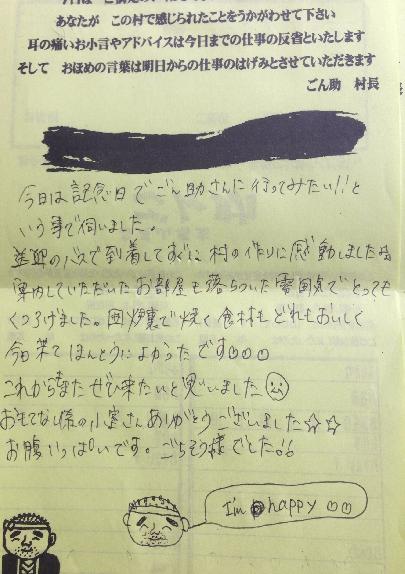 あなたが この村で感じられたことをうかがわせて下さい
耳の痛いお小言やアドバイスは今日までの仕事の反省といたします
そして おほめの言葉は明日からの仕事のはげみとさせていただきます
ごん助 村長
今日は記念日でごん助さんに行ってみたい!!と
いう事で伺いました。
送迎のバスで到着してすぐに村の作りに感動しました
案内していただいたお部屋も落ちついた雰囲気でとっても
くつろげました。囲炉裏で焼く食材もどれもおいしく
今日来てほんとうによかったです
これからもまたぜひ来たいと思いました
おもてなし係の小室さんありがとうございました☆☆
お腹いっぱいです。ごちそう様でした
I'm happy